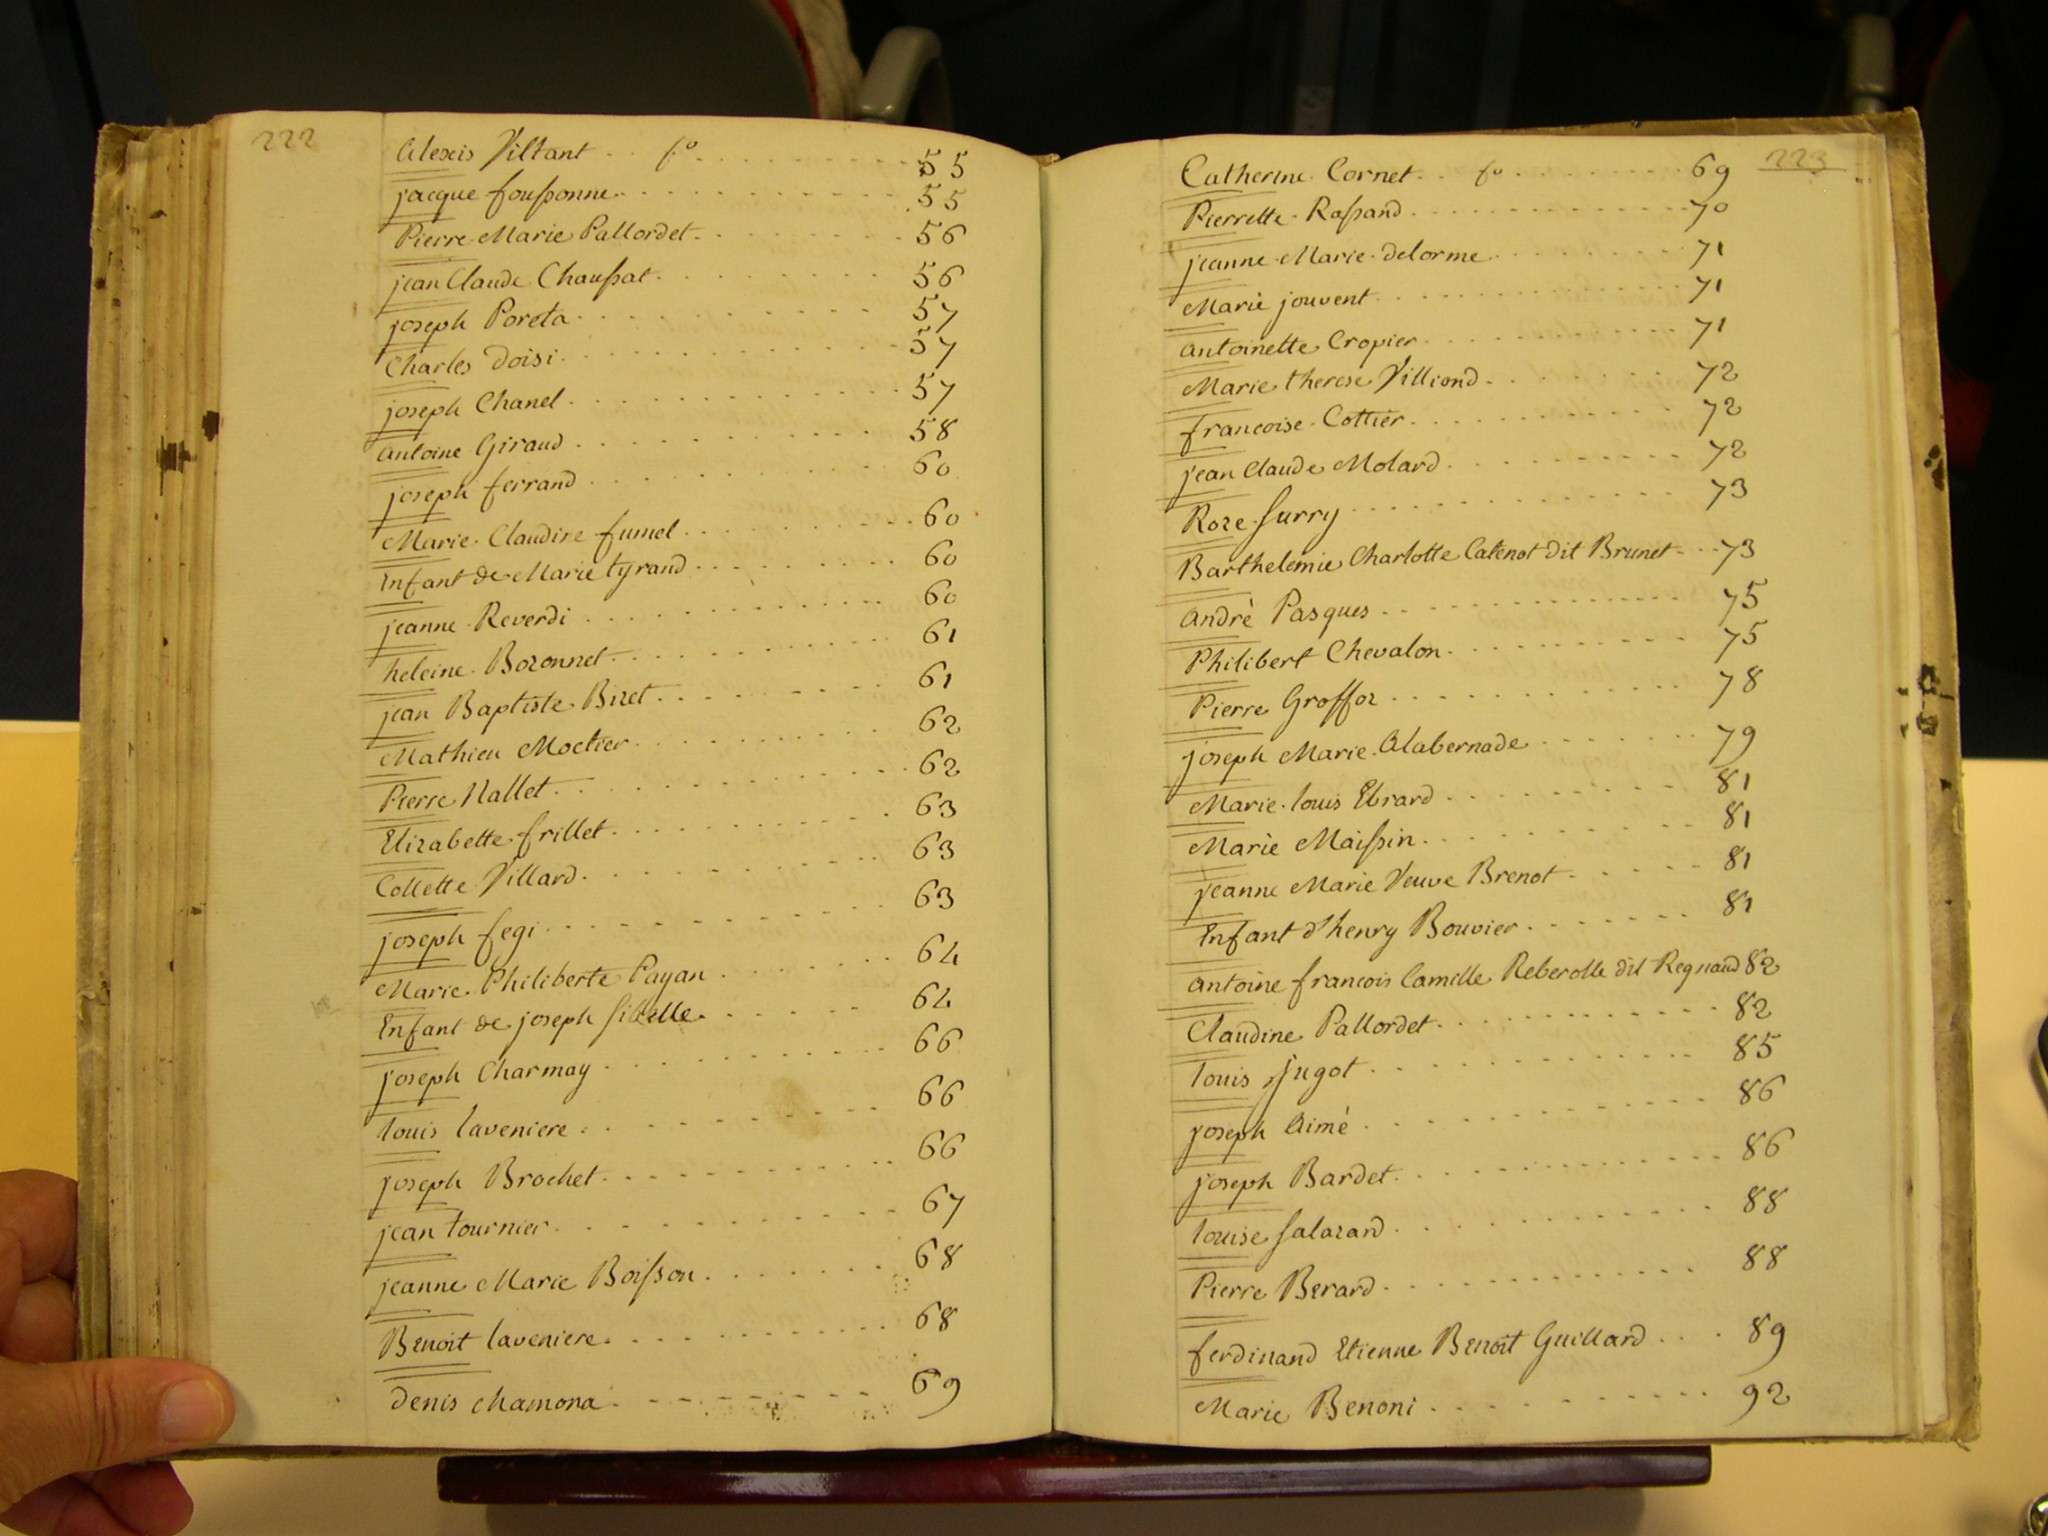 222
Alexis Viltant . . fo . . . . . . . . . 55
jacque foussonne . . . . . . . . . . 55
Pierre Marie Pallordet . . . . . . . . 56
jean Claude Chaussat . . . . . . . . . 56
joseph Poreta . . . . . . . . . . . 57
Charles Doisi . . . . . . . . . . . 57
joseph Chanel . . . . . . . . . . . 57
antoine Giraud . . . . . . . . . . . 58
joseph ferrand . . . . . . . . . . . 60
Marie Claudine fumel . . . . . . . . . 60
Enfant de Marie tyrand . . . . . . . . 60
jeanne Reverdi . . . . . . . . . . . 60
heleine Bozonnet . . . . . . . . . . 61
jean Baptiste Bizet . . . . . . . . . 61
Mathieu Moctier . . . . . . . . . . 62
Pierre Nallet . . . . . . . . . . . 62
Elizabette frillet . . . . . . . . . . 63
Collette Villard . . . . . . . . . . 63
joseph fegi . . . . . . . . . . . . 63
Marie Philiberte Payan . . . . . . . . 64
Enfant de joseph . . . . . . 64
joseph Charmay . . . . . . . . . . . 66
louis laveniere . . . . . . . . . . . 66
joseph Brochet . . . . . . . . . . . 66
jean tournier . . . . . . . . . . . 67
jeanne Marie Boisson . . . . . . . . 68
Benoit laveniere . . . . . . . . . . 68
Denis chamona . . . . . . . . . . . 69
223
Catherine Cornet . . fo . . . . . . . 69
Pierrette Rassand . . . . . . . . . . 70
jeanne Marie delorme . . . . . . . . 71
Marie jouvent . . . . . . . . . . . 71
antoinette Cropier . . . . . . . . . 71
Marie therese Villiond . . . . . . . . 72
francoise Cottier . . . . . . . . . . 72
jean Claude Molard . . . . . . . . . 72
Roze Surry . . . . . . . . . . . . 73
Barthelemie Charlotte Catenot dit Brunet . . . 73
andrè Pasques . . . . . . . . . . . 75
Philibert Chevalon . . . . . . . . . 75
Pierre Groffoz . . . . . . . . . . . 78
joseph Marie Alabernade . . . . . . . 79
Marie louis Ebrard . . . . . . . . . 81
Marie Maissin . . . . . . . . . . . 81
jeanne Marie Veuve Brenot . . . . . . 81
Enfant d'henry Bouvier . . . . . . . . 81
antoine francois Camille Reberolle dit Regnaud 82
Claudine Pallordet . . . . . . . . . . 82
louis jugot . . . . . . . . . . . . 85
joseph Aimé . . . . . . . . . . . . 86
joseph Bardet . . . . . . . . . . . 86
louise Salazard . . . . . . . . . . . 88
Pierre Berard . . . . . . . . . . . 88
ferdinand Etienne Benoit Guillard . . . . 89
Marie Benoni . . . . . . . . . . . 92